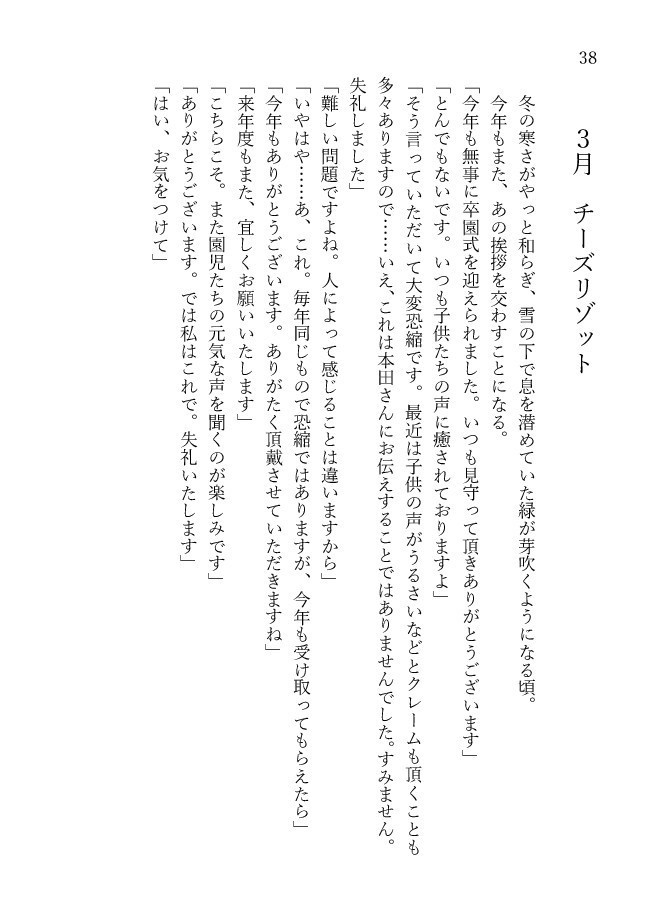 38
３月　チーズリゾット
冬の寒さがやっと和らぎ、雪の下で息を潜めていた緑が芽吹くようになる頃。
今年もまた、あの挨拶を交わすことになる。
「今年も無事に卒園式を迎えられました。いつも見守って頂きありがとうございます」
「とんでもないです。いつも子供たちの声に癒されておりますよ」
「そう言っていただいて大変恐縮です。最近は子供の声がうるさいなどとクレームも頂くことも
多々ありますので……いえ、これは本田さんにお伝えすることではありませんでした。すみません。
失礼しました」
「難しい問題ですよね。人によって感じることは違いますから」
「いやはや……あ、これ。毎年同じもので恐縮ではありますが、今年も受け取ってもらえたら」
「今年もありがとうございます。ありがたく頂戴させていただきますね」
「来年度もまた、宜しくお願いいたします」
「こちらこそ。また園児たちの元気な声を聞くのが楽しみです」
「ありがとうございます。では私はこれで。失礼いたします」
「はい、お気をつけて」